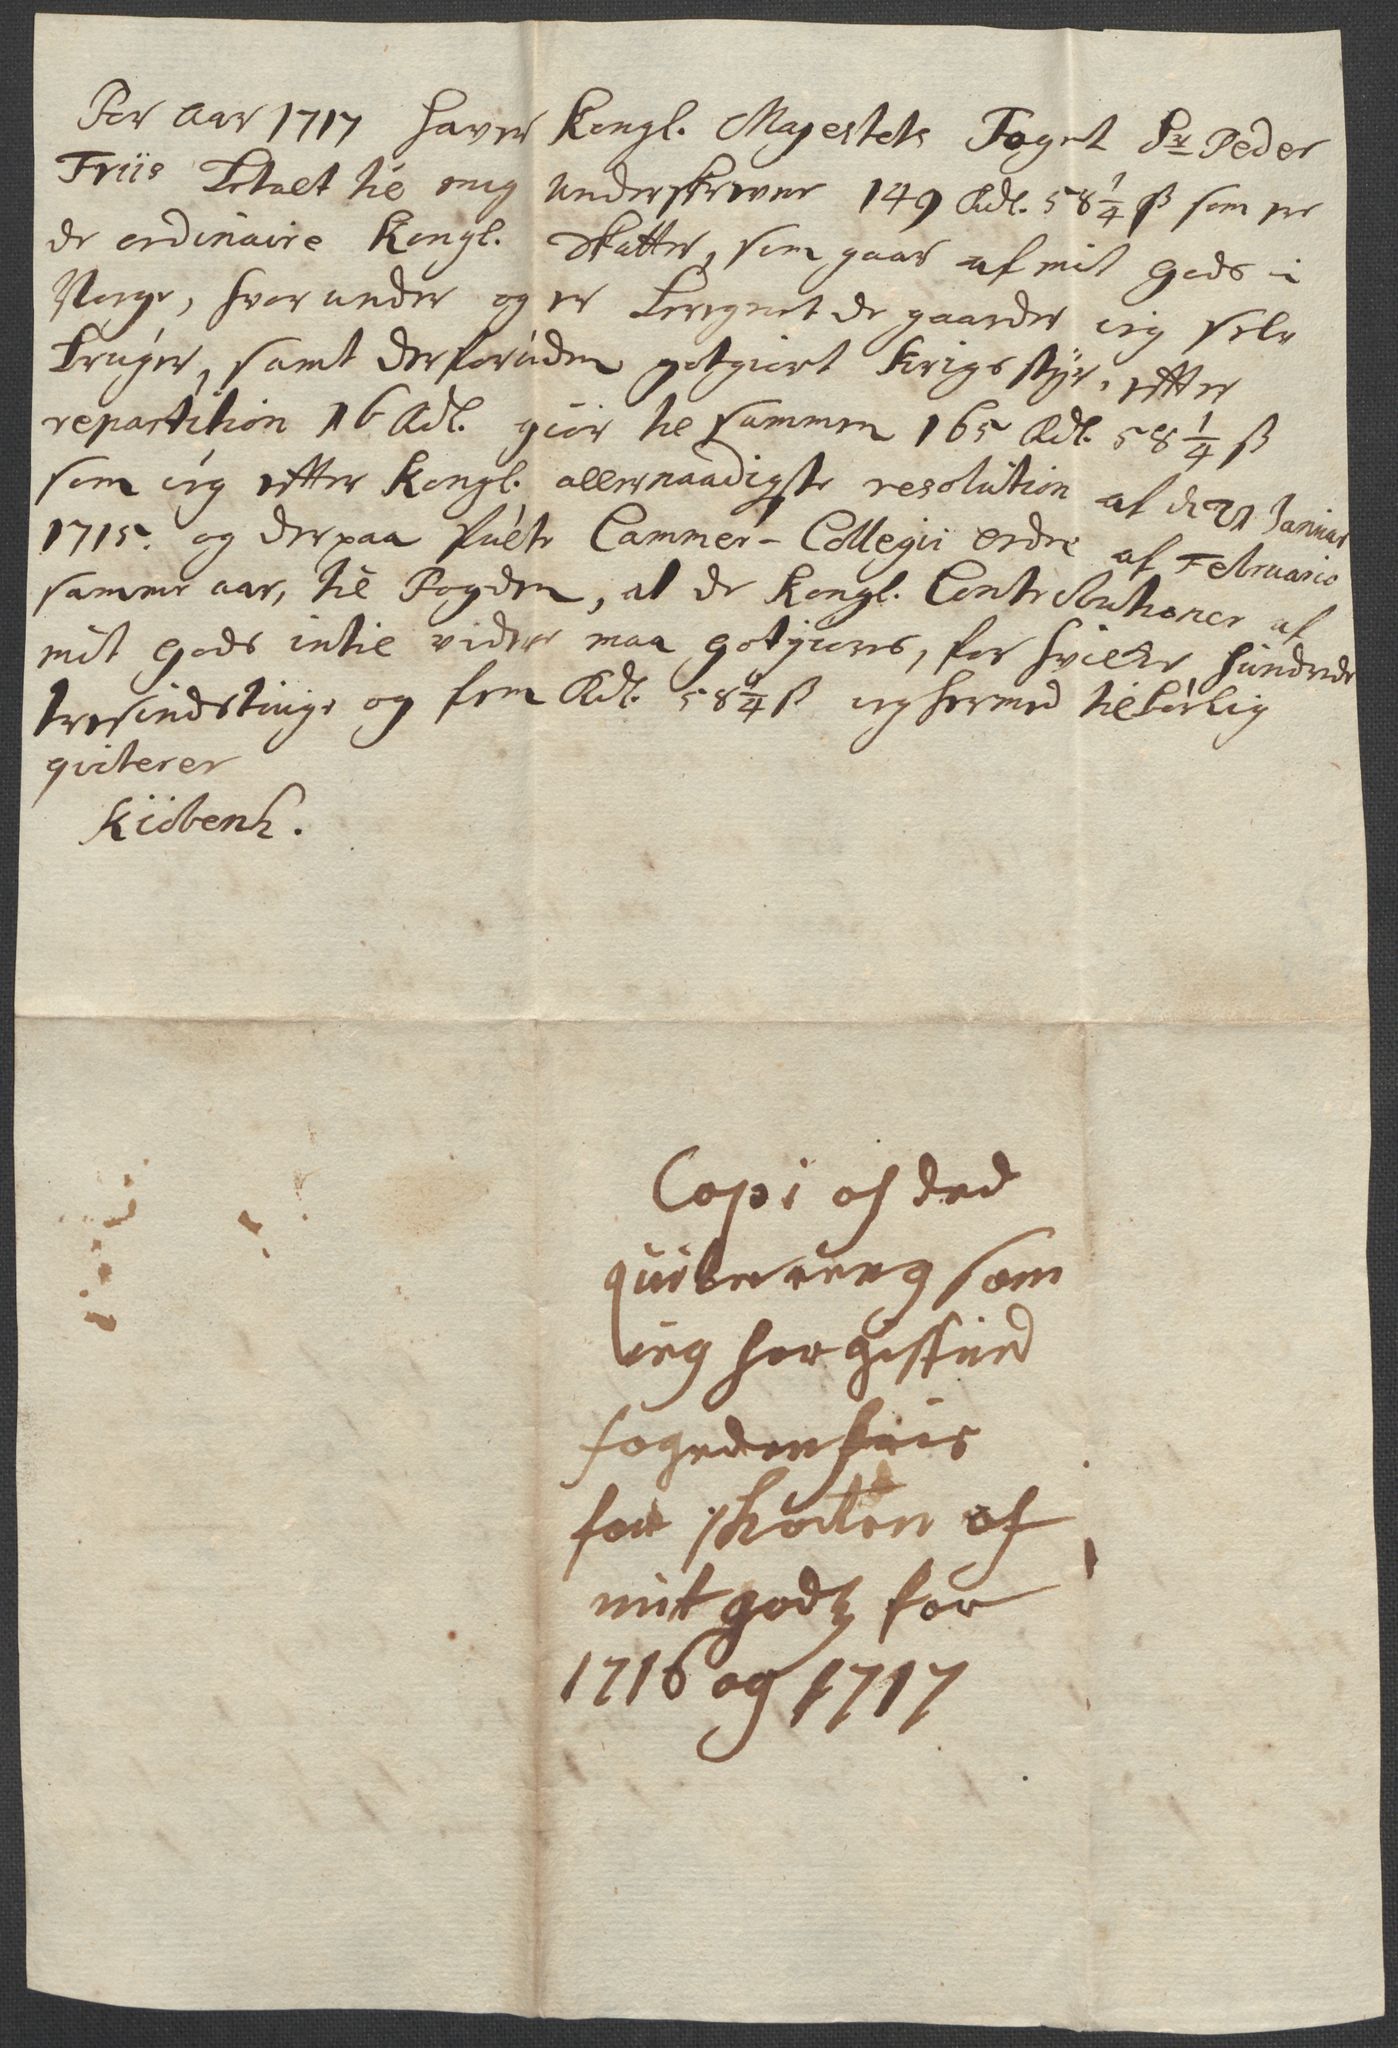 For Aar 1717 haver Kongl. Majestets Foget Sr Peder
Friis betalt til mig underskrevne 149 Rdl. 58 1/4 ß som er
de ordinaire Kongl. Skatter, som gaar af mit gods i
Norge, hvor under og er beregnet de gaarder ieg selv
bruger, samt derforuden gotgiort Krigs styr, efter
repartition 16 Rdl. giør til sammen 165 Rdl. 58 1/4 ß
som ieg efter Kongl. allernaadigste resolution af den 21 Januar
1715. og derpaa fulte Cammer-Collegii ordre af Februario
samme aar, til Fogden, at de Kongl. Contributioner af
mit gods intil videre maa gotgiøres, for hvilke hundrede
tresindstiuge og fem Rdl. 58 1/4 ß ieg hermed tilbørlig
qviterer
Kiøbenh.
Copi af ded
quitering som
ieg har giffued
fogeden friis
for skatten af
mit godtz for
1716 og 1717